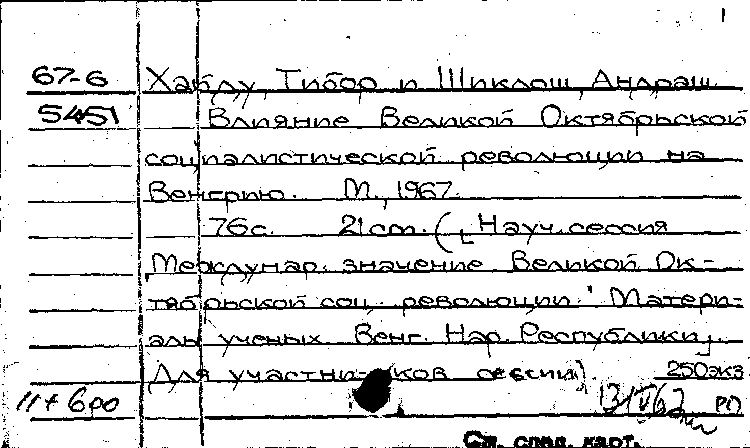 1
67-6 Хайду, Тибор и Шиклош, Андраш
5451 Влияние Великой Октябрьской
социалистической революции на
Венгрию. М., 1967.
76с. 21 cm. ([Науч. сессия
"Междунар. значение Великой Ок-
тябрьской соц. революции." Матери-
алы ученых Венг. Нар. Республики].
Для участников сессии). 250экз
11+600 РП
См. след. карт.